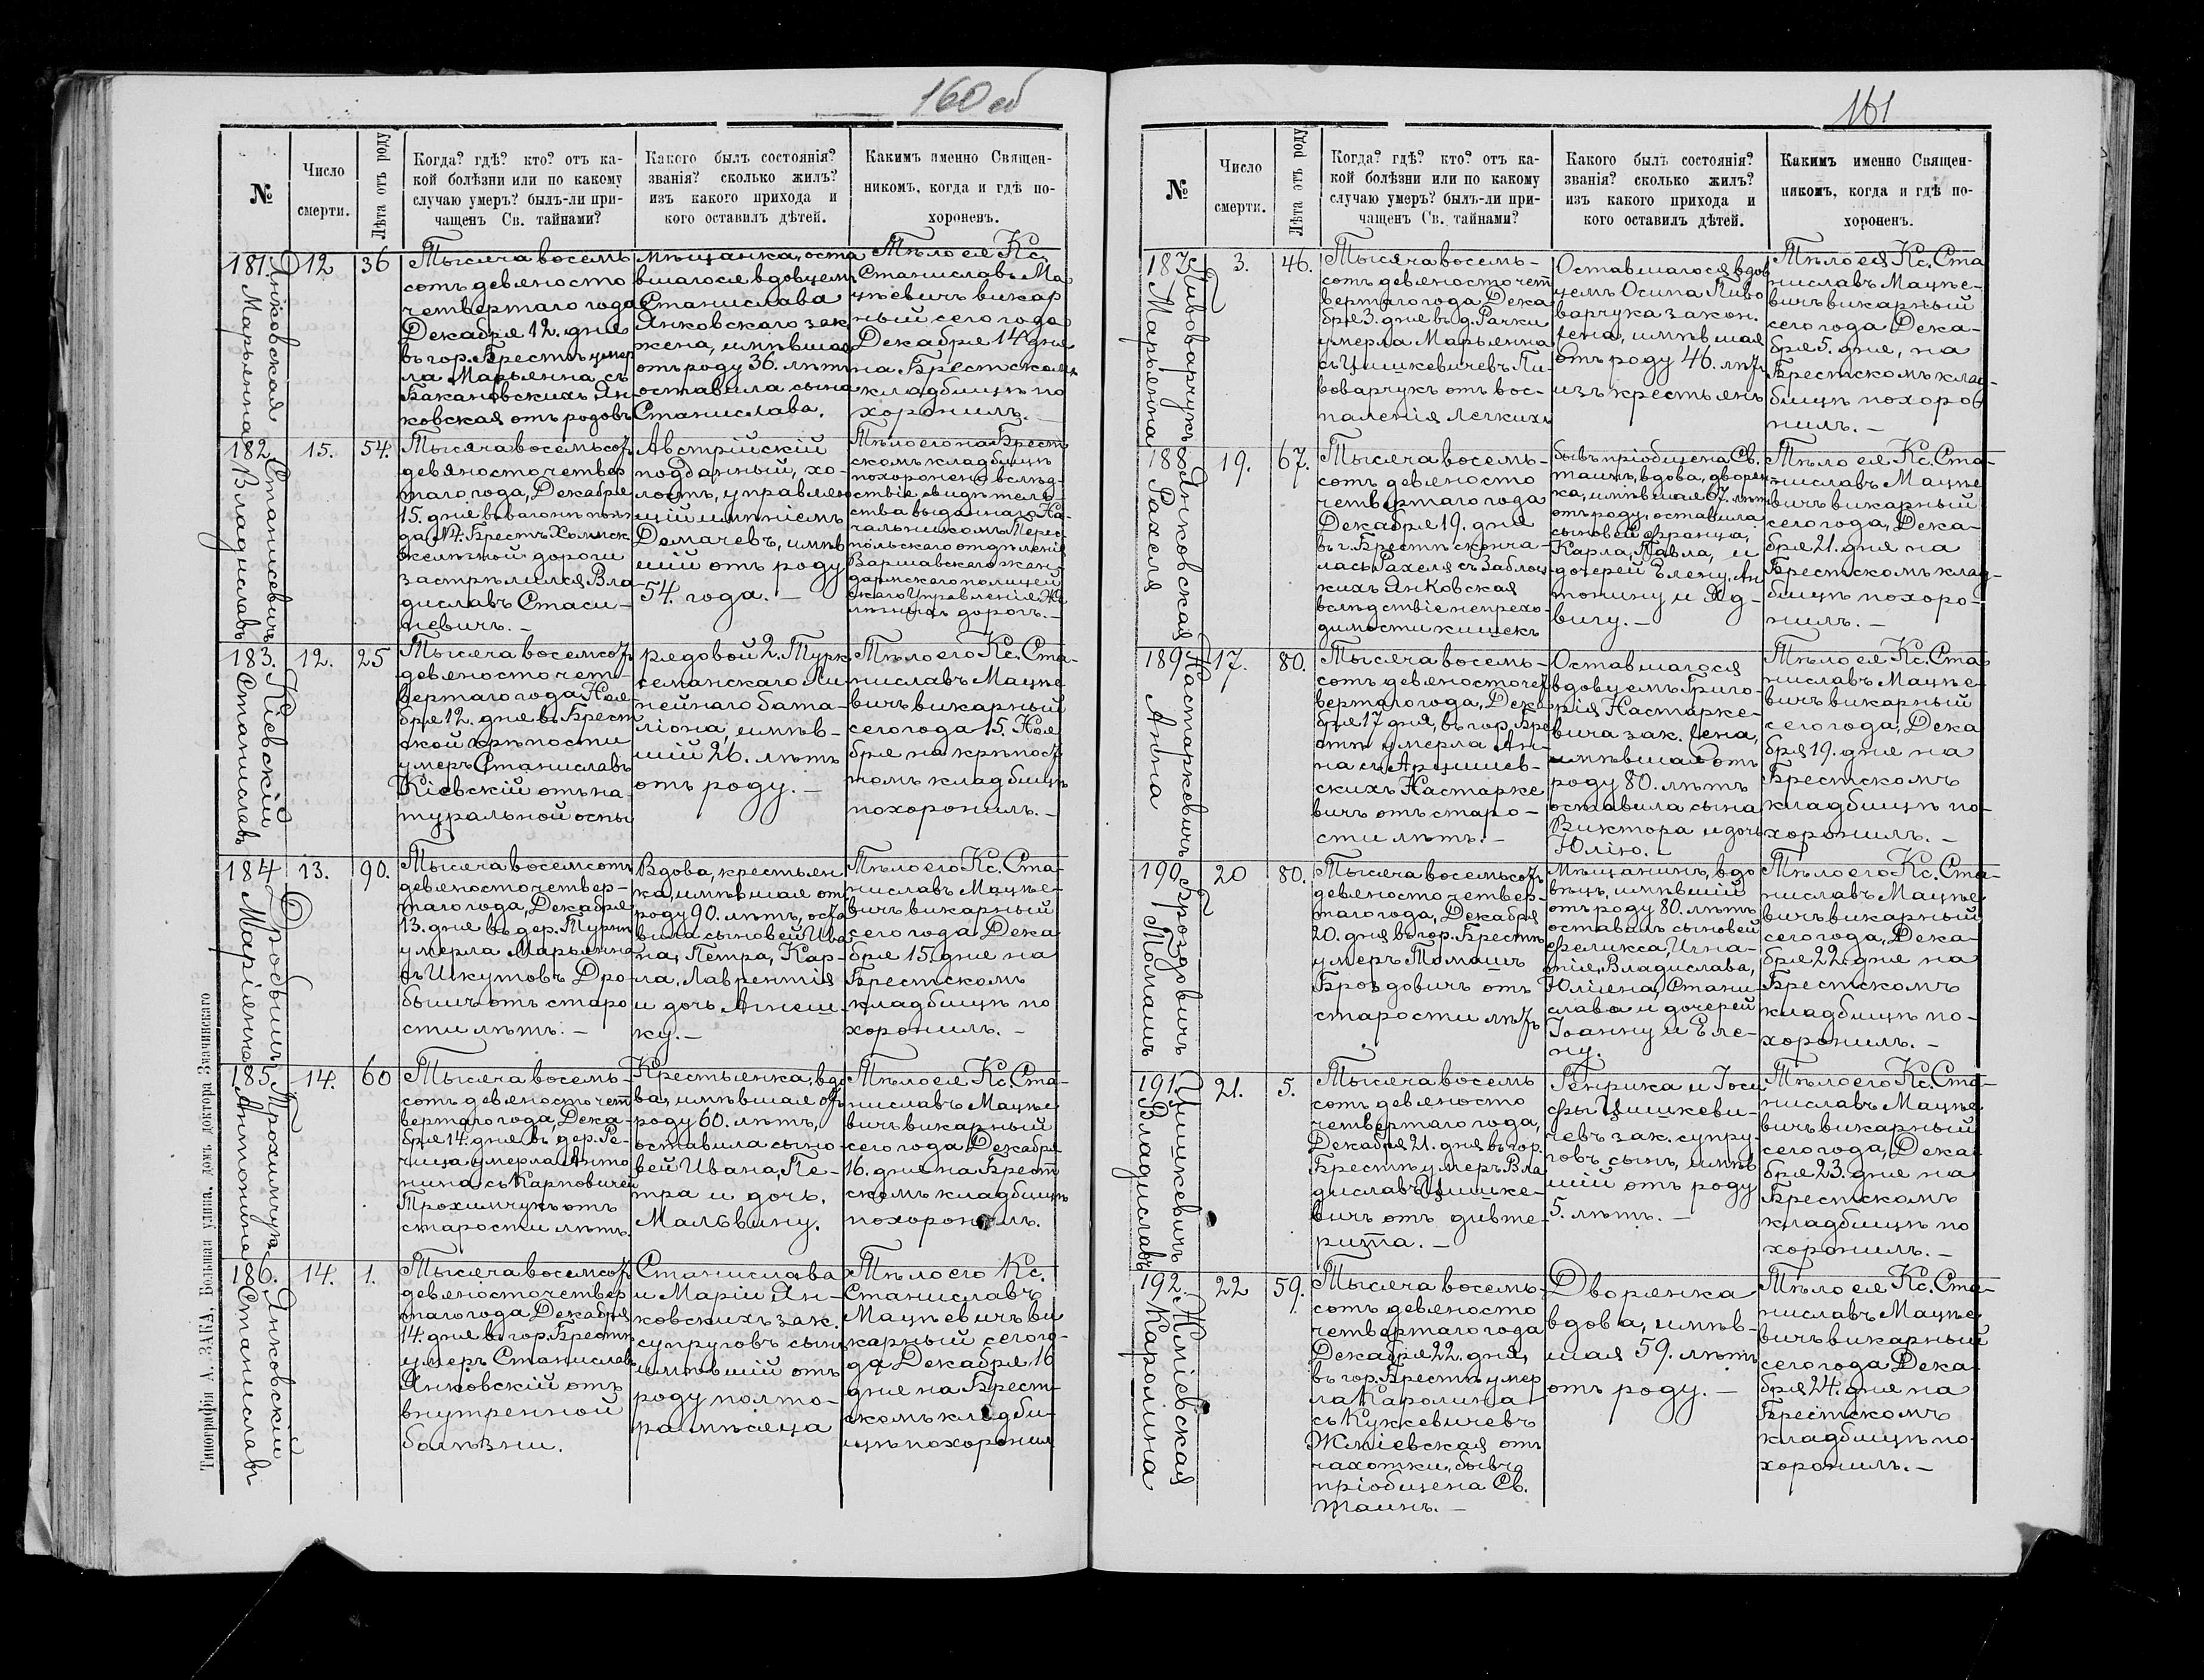 160 об
№
Число
смерти.
Лѣта отъ роду
Когда? гдѣ? кто? отъ ка-
кой болѣзни или по какому
случаю умеръ? былъ-ли при-
чащенъ Св. тайнами?
Какого былъ состоянія?
званія? сколько жилъ?
изъ какого прихода и
кого оставилъ дѣтей.
Какимъ именно Священ-
никомъ, когда и гдѣ по-
хороненъ.
181.
Янковская
Марьянна
12
36
Тысяча восемь
сотъ девяносто
четвертаго года
Декабря 12. дня
въ гор. Брестѣ умер
ла Марьянна съ
Бакановскихъ Ян
ковская отъ родовъ
мѣщанка, оста
вшагося вдовцемъ
Станислава
Янковскаго зак
жена, имѣвшая
отъ роду 36. лѣтъ
оставила сына
Станислава.
Тѣло ея Кс.
Станиславъ Ма
цѣевичъ викар
ный сего года
Декабря 14 дня
на Брестскомъ
кладбищѣ по
хоронилъ. —
182.
Стаписевичъ
Владиславъ
15.
54.
Тысяча восемьсотъ
девяносто четвер
таго года, Декабря
15. дня въ вагонѣ поѣз
да №4. Брестъ Холмск
желѣзной дороги
застрѣлился Вла
диславъ Стаси-
невичъ. —
Австрійскій
подданный, хо-
лостъ, управляю
щій имѣніемъ
Домачевъ, имѣв
шій отъ роду
54. года. —
Тѣло его на Брест
скомъ кладбищѣ
похоронено вслѣд-
ствіе свидѣтель-
ства выданнаго На-
чальникомъ Терес-
польскаго отдѣленія
Варшавскаго жан-
дармскаго полицей
скаго Управленія Же
лѣзныхъ дорогъ. —
183.
Кіевскій
Станиславъ
12.
25
Тысяча восемсотъ
девяносто чет-
вертаго года Ноя
бря 12. дня въ Брест
ской крѣпости
умеръ Станиславъ
Кіевскій отъ на-
туральной оспы
рядовой 2. Турк
сетанскаго Ли
нейнаго бата-
ліона, имѣв-
шій 26. лѣтъ
отъ роду. —
Тѣло его Кс. Ста-
ниславъ Мацѣе
вичъ викарный
сего года 15. Ноя
бря на крѣпост
номъ кладбищѣ
похоронилъ. —
184
Дробышъ
Маріянна
13.
90.
Тысяча восемсотъ
девяносто четвер-
таго года, Декабря
13. дня въ дер. Турнѣ
умерла Марьянна
съ Шкутовъ Дро-
бышъ отъ старо
сти лѣтъ. —
Вдова, крестьян
ка, имѣвшая отъ
роду 90. лѣтъ, оста
вила сыновей Ива
на, Петра, Кар-
ла, Лаврентія
и дочь Агнеш-
ку. —
Тѣло его Кс. Ста-
ниславъ Мацѣе-
вичъ викарный
сего года Дека
бря 15. дня на
Брестскомъ
кладбищѣ по
хоронилъ. —
185.
Трохимчукъ
Антонина
14.
60
Тысяча восемь-
сотъ девяносто чет
вертаго года, Дека-
бря 14. дня въ дер. Ре-
чица умерла Анто
нина съ Карповичей
Трохимчукъ отъ
старости лѣтъ.
Крестьянка, вдо
ва, имѣвшая отъ
роду 60. лѣтъ,
оставила сыно-
вей Ивана, Пе-
тра и дочь,
Мальвину.
Тѣло ея Кс. Ста-
ниславъ Мацѣе
вичъ викарный
сего года Декабря
16. дня на Брест
скомъ кладбищѣ
похоронилъ.
186.
Янковскій
Станиславъ
14.
1.
Тысяча восемсотъ
девяносто четвер
таго года Декабря
14. дня въ гор. Брестѣ
умеръ Станиславъ
Янковскій отъ
внутренной
болѣзни.
Станислава
и Маріи Ян-
ковскихъ зак.
супруговъ сынъ
имѣвшій отъ
роду полто-
ра мѣсяца
Тѣло его Кс.
Станиславъ
Мацѣевичъ ви
карный сего го-
да Декабря 16
дня на Брест-
скомъ кладби-
щѣ похоронил
Типографія А. ЗАКА, Большая улица, домъ доктора Змачинскаго
161
№
Число
смерти.
Лѣта отъ роду
Когда? гдѣ? кто? отъ ка-
кой болѣзни или по какому
случаю умеръ? былъ-ли при-
чащенъ Св. тайнами?
Какого былъ состоянія?
званія? сколько жилъ?
изъ какого прихода и
кого оставилъ дѣтей.
Какимъ именно Священ-
никомъ, когда и гдѣ по-
хороненъ.
187
Пивоварчукъ
Марьянна
3.
46.
Тысяча восемь-
сотъ девяносто чет
вертаго года Дека
бря 3. дня въ д. Рачки
умерла Марьянна
съ Цишкевичевъ Пи-
воварчукъ отъ вос-
паленія легкихъ
Оставшагося вдов
цемъ Осипа Пиво
варчука закон.
жена, имѣвшая
отъ роду 46. лѣтъ
изъ крестьянъ
Тѣло ея Кс. Ста
ниславъ Мацѣе-
вичъ викарный
сего года Дека-
бря 5. дня, на
Брестскомъ клад-
бищѣ похоро
нилъ. —
188
Янковская
Рахеля
19.
67.
Тысяча восемь-
сотъ девяносто
четвертаго года
Декабря 19. дня
въ г. Брестѣ сконча-
лась Рахеля съ Заблоц
кихъ Янковская
вслѣдствіе непрохо-
димости кишекъ
бывъ пріобщена Св.
таинъ, вдова, дворян-
ка, имѣвшая 67. лѣтъ
отъ роду, оставила
сыновей Франца,
Карла, Павла, и
дочерей Елену, Ан
тонину и Яд-
вигу. —
Тѣло ея Кс. Ста-
ниславъ Мацѣе
вичъ викарный
сего года, Дека-
бря 21. дня на
Брестскомъ клад-
бищѣ похоро-
нилъ. —
189
Настаркевичъ
Анна
17.
80.
Тысяча восемь-
сотъ девяносто чет
вертаго года, Дека
бря 17 дня, въ гор. Бре
стѣ умерла Ан-
на съ Арцишев-
скихъ Настарке
вичъ отъ старо-
сти лѣтъ. —
Оставшагося
вдовцемъ Григо-
рія Настарке-
вича зак. жена,
имѣвшая отъ
роду 80. лѣтъ
оставила сына
Виктора и дочь
Юлію. —
Тѣло ея Кс. Ста
ниславъ Мацѣе-
вичъ викарный
сего года, Дека
бря 19. дня на
Брестскомъ
кладбищѣ по-
хоронилъ. —
190
Броздовичъ
Томашъ
20
80.
Тысяча восемьсотъ
девяносто четвер-
таго года, Декабря
20. дня въ гор. Брестѣ
умеръ Томашъ
Броздовичъ отъ
старости лѣтъ
Мѣщанинъ, вдо
вецъ, имѣвшій
отъ роду 80. лѣтъ
оставилъ сыновей
Феликса, Игна-
тія, Владислава,
Юліяна, Стани-
слава и дочерей
Іоанну и Еле-
ну.
Тѣло его Кс. Ста-
ниславъ Мацѣе
вичъ викарный
сего года, Дека-
бря 22. дня на
Брестскомъ
кладбищѣ по-
хоронилъ. —
191
Цишкевичъ
Владиславъ
21.
5.
Тысяча восемь
сотъ девяносто
четвертаго года,
Декабря 21. дня въ гор.
Брестѣ умеръ Вла
диславъ Цишке-
вичъ отъ дифте-
рита. —
Генрика и Іози
фы Цишкеви-
чевъ зак. супру-
говъ сынъ, имѣв
шій отъ роду
5. лѣтъ. —
Тѣло его Кс. Ста-
ниславъ Мацѣе
вичъ викарный
сего года, Дека-
бря 23. дня на
Брестскомъ
кладбищѣ по
хоронилъ. —
192.
Жміевская
Каролина
22
59.
Тысяча восемь-
сотъ девяносто
четвертаго года
Декабря 22. дня,
въ гор. Брестѣ умер
ла Каролина
съ Кукевичевъ
Жміевская отъ
чахотки, бывъ
пріобщена Св.
таинъ. —
Дворянка
вдова, имѣв-
шая 59. лѣтъ
отъ роду. —
Тѣло ея Кс. Ста-
ниславъ Мацѣе
вичъ викарный
сего года Дека-
бря 24. дня на
Брестскомъ
кладбищѣ по-
хоронилъ. —